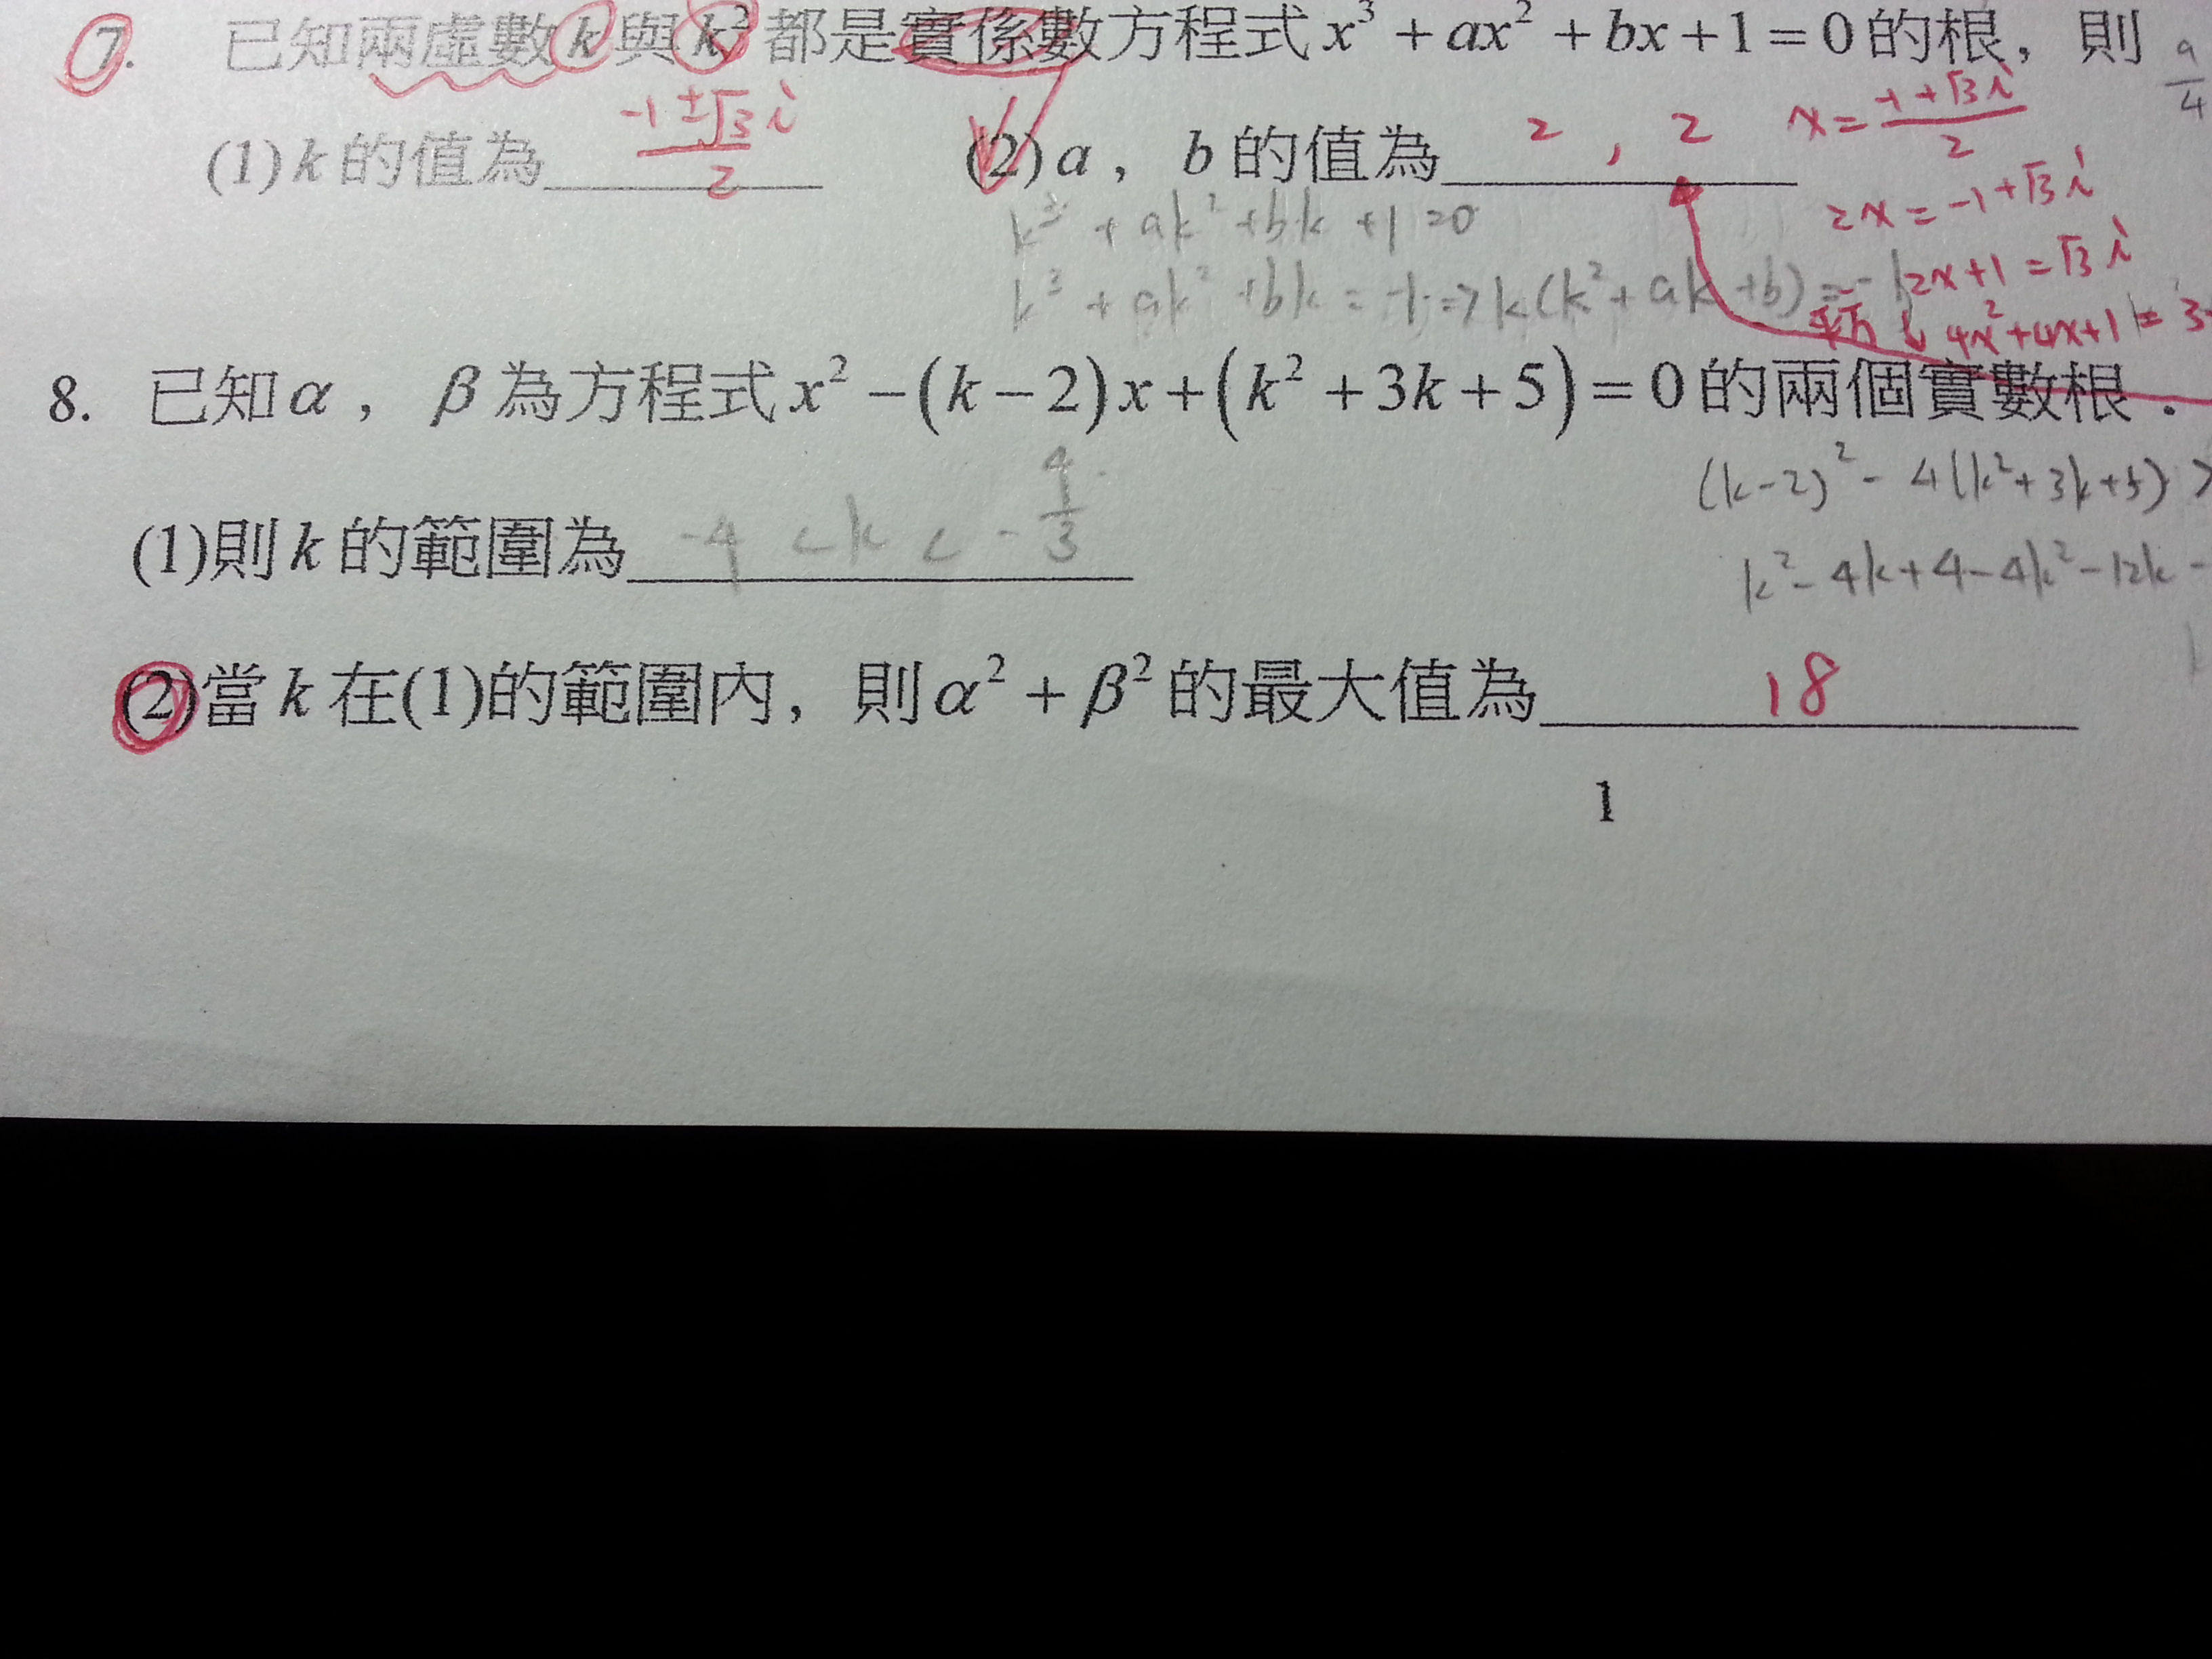 7. 已知兩虛數k與k²都是實係數方程式x³+ax²+bx+1=0的根，則
a/4
(1)k的值為 (-1±√3i)/2 (2)a，b的值為 2，2
x=(-1+√3i)/2
2x=-1+√3i
2x+1=√3i
平方↓4x²+4x+1=3
k³+ak²+bk+1=0
k³+ak²+bk=-1=>k(k²+ak+b)=-1
8. 已知α，β為方程式x²-(k-2)x+(k²+3k+5)=0的兩個實數根．
(k-2)²-4(k²+3k+5)>
k²-4k+4-4k²-12k-
(1)則k的範圍為 -4<k<-4/3
(2)當k在(1)的範圍內，則α²+β²的最大值為 18
1